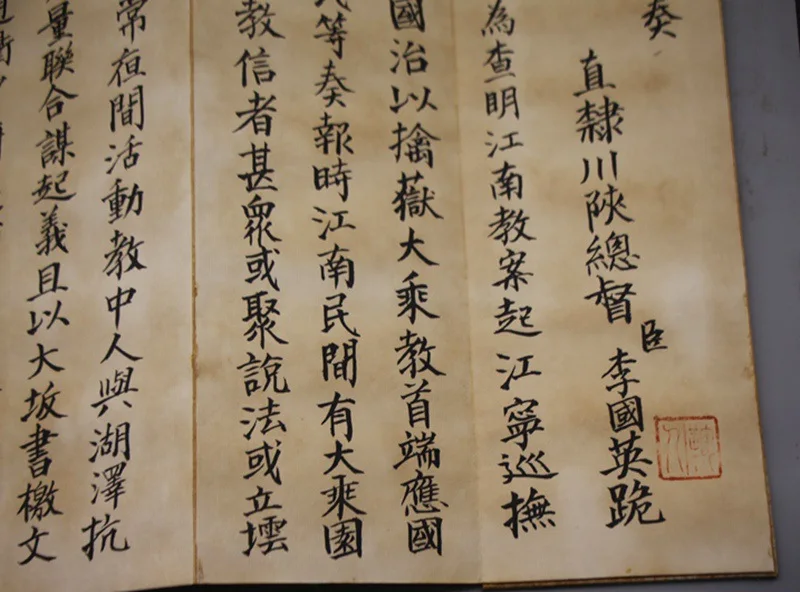 奏
直隸川陝總督臣李國英跪
為查明江南教案起江寧巡撫
國治以擒獄大乘教首端應國
等奏報時江南民間有大乘園
教信者甚衆或聚說法或立
常夜間活動教中人與湖澤抗
量聯合謀起義且以大坂書檄文